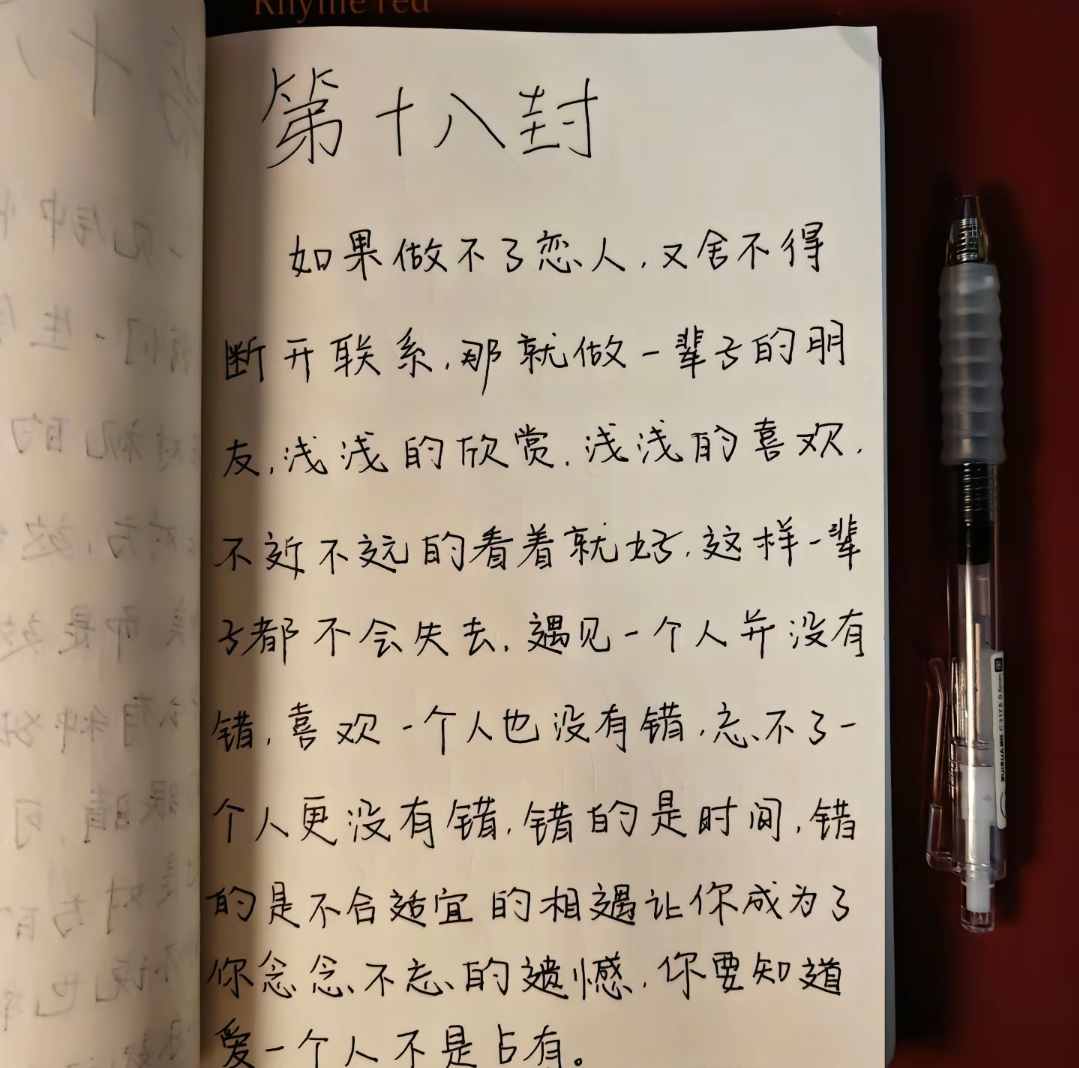 Rhyme red
第十八封
如果做不了恋人,又舍不得
断开联系,那就做一辈子的朋
友,浅浅的欣赏,浅浅的喜欢,
不近不远的看着就好,这样一辈
子都不会失去,遇见一个人并没有
错,喜欢一个人也没有错,忘不了一
个人更没有错,错的是时间,错
的是不合适宜的相遇让你成为了
你念念不忘的遗憾,你要知道
爱一个人不是占有。